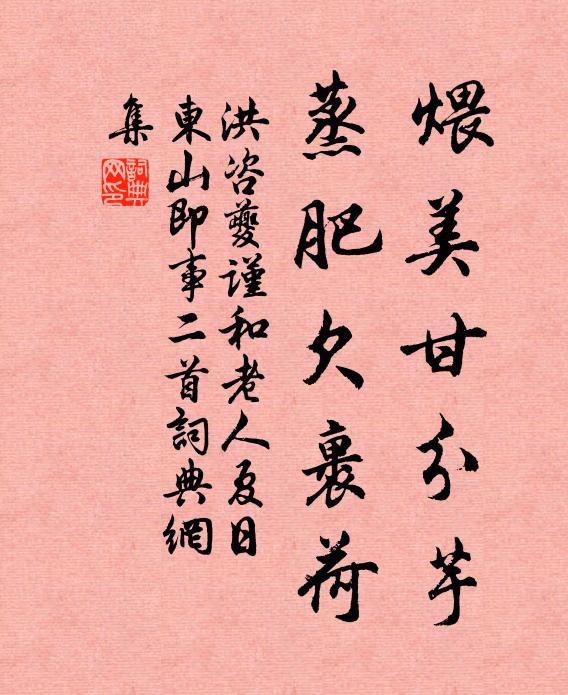 煨美甘分芋
蒸肥欠裹荷
洪咨夔謹和老人夏日
東山即事二首詞典網
集
詞典網印